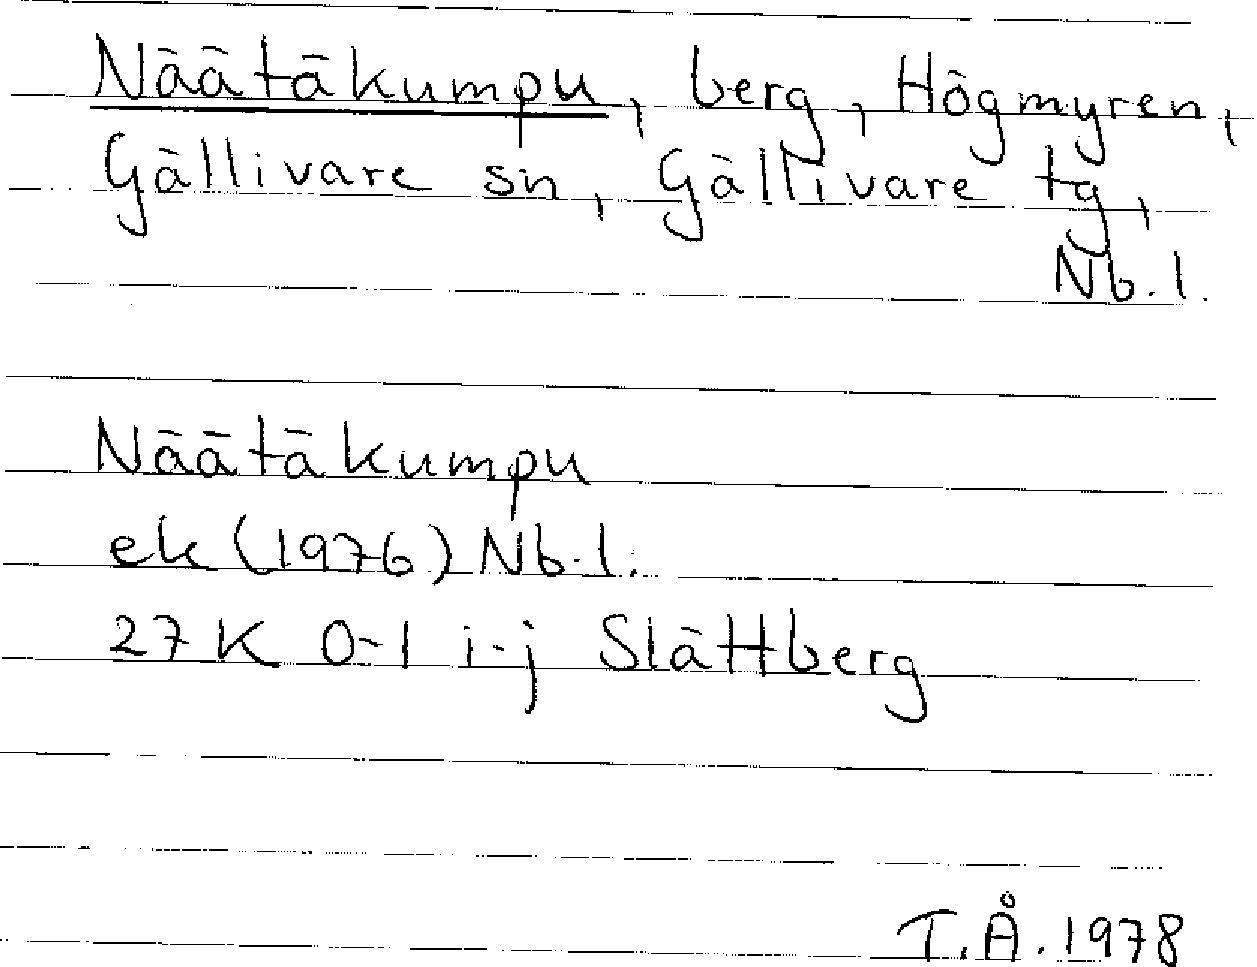 Näätäkumpu, berg, Högmyren,
Gällivare sn, Gällivare tg,
Nb.l.
Näätäkumpu
ek (1976) Nb.l.
27 K 0-1 i-j Slättberg
T.Å.1978